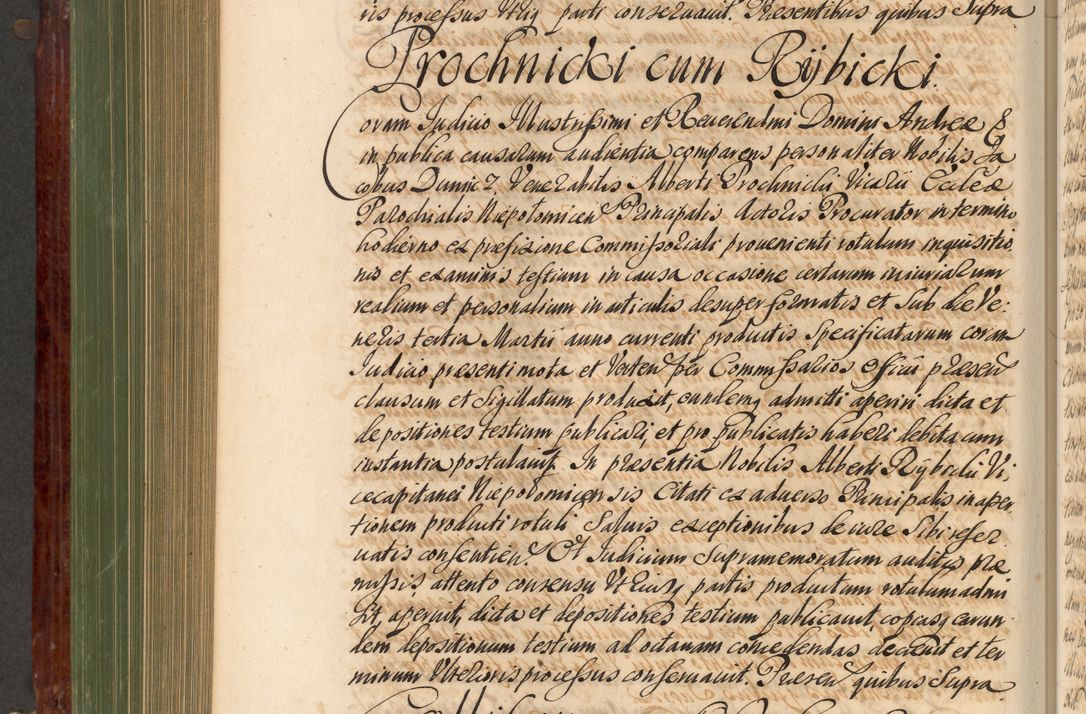 ris processus Vtriq parti conseruauit. Præsentibus quibus Supra
Prochnicki cum Rÿbicki.
Coram Judicio Illustrissimi et Reuerendmi Domini Andreæ &
in publica causarum audientia comparens personaliter Nobilis Ja
cobus Dunicz Venerabilis Alberti Prochnicki Vicarii Eccleæ
Parochialis Niepołomicen Principalis Actoris Procurator in termino
hodierno ex præfixione Commissoriali prouenienti rotulum inquisitio
nis et examinis testium in causa occasione certarum iniuriarum
realium et personalium in articulis desuper formatis et sub die Ve:
neris tertia Martii anno currenti productis specificatarum coram
Judicio præsenti mota et Verten per Commissarios officii præsen
clausum et Sigillatum produxit, eundemq admitti aperiri dicta et
depositiones testium publicari, et pro publicatis haberi debita cum
instantia postulauit. In præsentia Nobilis Alberti Rÿbicki Vi
cecapitanei Niepołomicensis Citati ex aduerso Principalis in aper
tionem producti rotuli Saluis exceptionibus de iure Sibi reser
uatis consentien. Et Judicium Supramemoratum auditis præ
missis, attento consensu Vtriusq partis productum rotulum admi
sit, aperuit, dicta et depositiones testium publicauit, copiasq earun
dem depositionum testium ad octauam concedendas decreuit et ter
minum Vlterioris processus conseruauit. Præsen quibus Supra